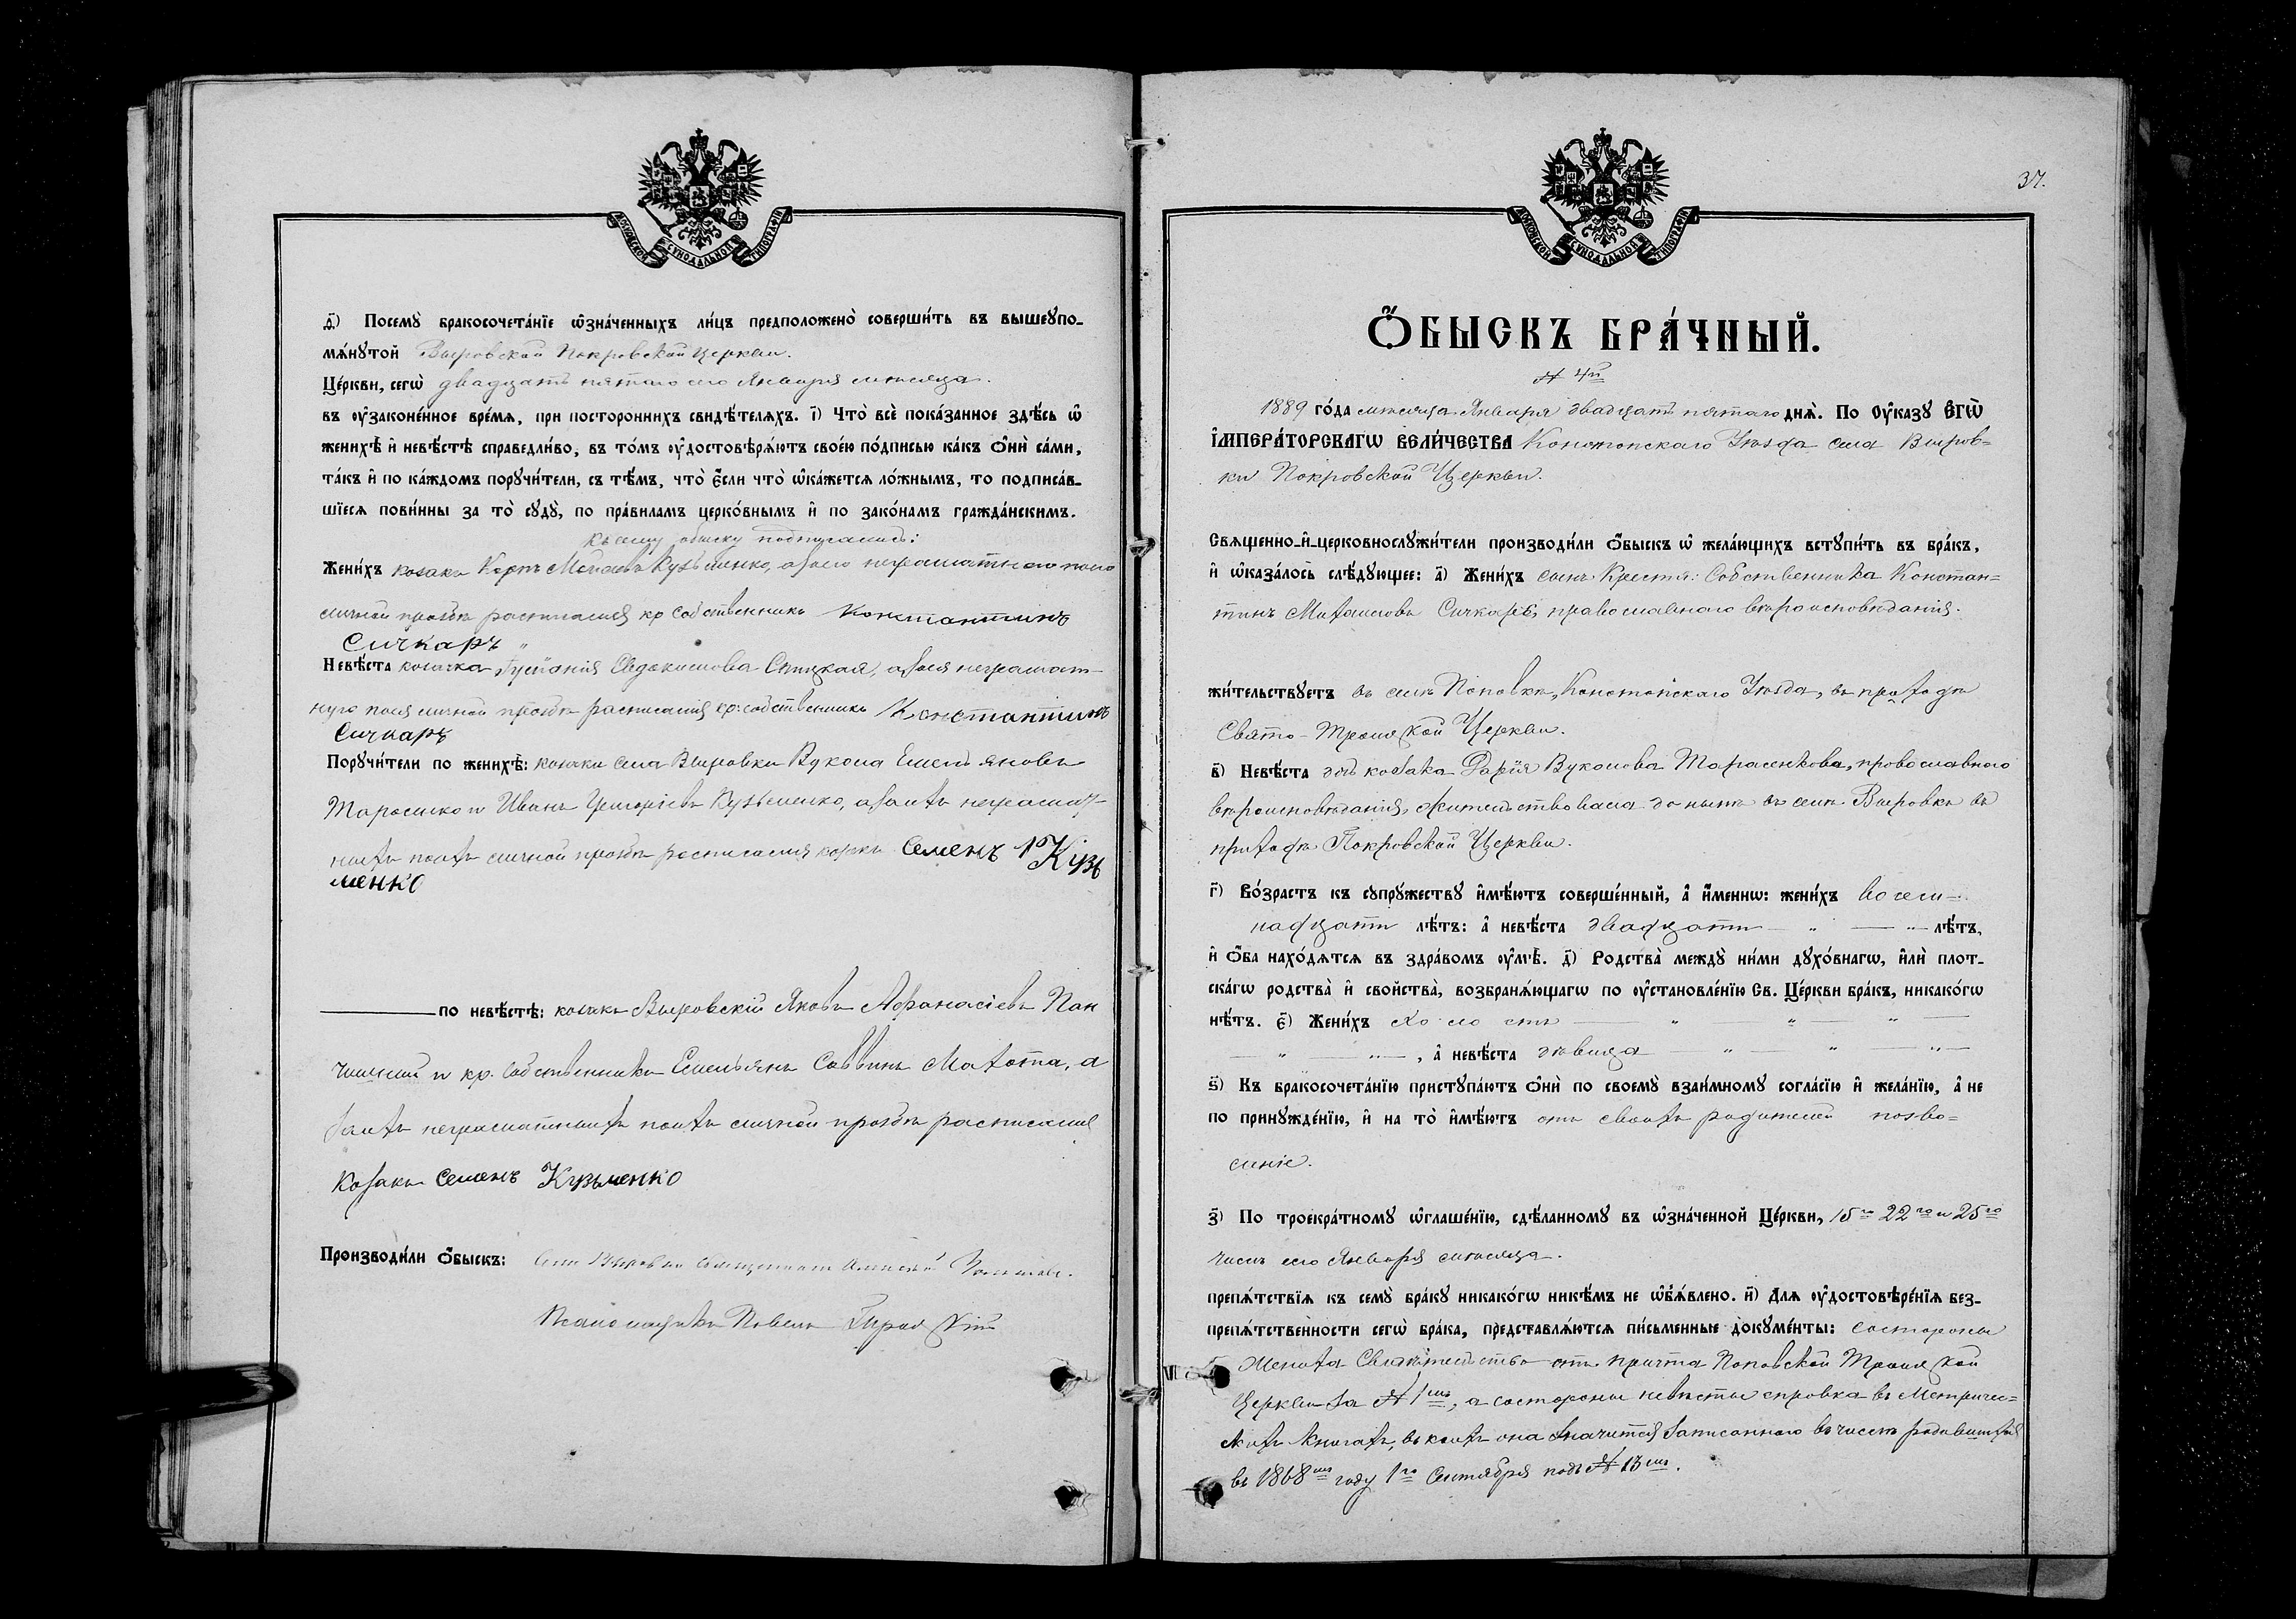 МОСКОВСКОЙ СѴНОДАЛЬНОЙ ТИПОГРАФІИ
д҃) Посемꙋ̀ бракосочета́нїе ѡ҆зна́ченныхъ ли́цъ предположено̀ соверши́ть въ вышеꙋпо-
мѧ́нꙋтой Выровской Покровской Церкви.
Це́ркви, сегѡ̀ двадцать пятаго сего Января месяца.
въ ᲂу҆законе́нное вре́мѧ, при посторонниxъ свидѣ́телѧхъ. і҃) Что̀ всѐ пока́занное здѣ́сь ѡ҆
женихѣ̀ и҆ невѣ́стѣ справедли́во, въ то́мъ ᲂу҆достовѣрѧ́ютъ свое́ю по́дписью ка́къ ѻ҆нѝ са́ми,
та́къ и҆ по ка́ждомъ порꙋчи́тели, съ тѣ́мъ, что̀ є҆́сли что̀ ѡ҆ка́жетсѧ ло́жнымъ, то подписа́в-
шїесѧ пови́нны за то̀ сꙋдꙋ̀, по пра́виламъ церко́внымъ и҆ по зако́намъ гражда́нскимъ.
къ сему обыску подписались:
Жени́хъ козакъ Кузьменко, а за него неграмотнаго по его
личной прозьбе росписался кр. собственникъ Константинъ
Сичкаръ
Невѣ́ста козачка Евдокимова а за нея неграмот-
ную по ея личной прозьбе расписался кр. собственникъ Константинъ
Сичкаръ
Порꙋчи́тели по женихѣ̀: козаки села Выровки Вукола Емельяновъ
Тарасенко и Иванъ Григоріевъ Кузьменко, а за нихъ неграмот-
ныхъ по ихъ личной прозьбе росписался козакъ Семенъ Кузь
менко
по невѣ́стѣ: козакъ Выровскій Яковъ Афанасіевъ Пан
и кр. собственникъ Емельянъ Саввинъ Махота, а
за нихъ неграмотныхъ по ихъ личной прозьбе росписался
козакъ Семенъ Кузьменко
Производи́ли ѻ҆́быскъ: Села Выровки Священникъ Алексій
Псаломщикъ Павелъ
37.
МОСКОВСКОЙ СѴНОДАЛЬНОЙ ТИПОГРАФІИ
Ѻ҆́БЫСКЪ БРА́ЧНЫЙ.
№ 4й
1889 го́да месяца Января двадцать пятаго днѧ̀. По Ѹ҆́казꙋ Є҆Гѡ̀
І҆МПЕРА́ТОРСКАГѠ ВЕЛИ́ЧЕСТВА Конотопскаго Уезда села Выров-
ки Покровской Церкви.
Свѧщенно-и҆-церковнослꙋжи́тели производи́ли ѻ҆́быскъ ѡ҆ жела́ющихъ встꙋпи́ть въ бра́къ,
и҆ ѡ҆каза́лось слѣ́дꙋющее: а҃) Жени́хъ сынъ Крестья: Собственника Констан-
тинъ Михаиловъ Сичкаръ, православнаго вероисповеданія.
жи́тельствꙋетъ въ селе Поповке, Конотопскаго Уезда, въ приходе
Свято-Троицкой Церкви.
в҃) Невѣ́ста дочь козака Дарія Вуколова Тарасенкова, православнаго
вероисповеданія, жительствовала до ныне въ селе Выровке въ
приходе Покровской Церкви.
г҃) Во́зрастъ къ сꙋпрꙋ́жествꙋ и҆мѣ́ютъ соверше́нный, а҆̀ и҆́меннѡ: жени́хъ восем-
надцати лѣ́тъ: а҆̀ невѣ́ста двадцати лѣ́тъ,
и҆ ѻ҆́ба нахо́дѧтсѧ въ здра́вомъ ᲂу҆мѣ̀. д҃) Родства̀ междꙋ̀ ни́ми дꙋхо́внагѡ, и҆лѝ плот-
ска́гѡ родства̀ и҆ свойства̀, возбранѧ́ющагѡ по ᲂу҆становле́нїю Св. Це́ркви бра́къ, никако́гѡ
нѣ́тъ. є҃) Жени́хъ холостъ
, а҆̀ невѣ́ста девица
ѕ҃) Къ бракосочета́нїю пристꙋпа́ютъ ѻ҆нѝ по своемꙋ̀ взаи́мномꙋ согла́сїю и҆ жела́нїю, а҆̀ не
по принꙋжде́нїю, и҆ на то̀ и҆мѣ́ютъ отъ своихъ родителей позво-
леніе.
з҃) По троекра́тномꙋ ѡ҆глаше́нїю, сдѣ́ланномꙋ въ ѡ҆зна́ченной Це́ркви, 15го 22го и 25го
чиселъ сего Января месяца.
препѧ́тствїѧ къ семꙋ̀ бра́кꙋ никако́гѡ никѣ́мъ не ѡ҆б̾ѧ́влено. и҃) Длѧ ᲂу҆достовѣре́нїѧ без-
препѧ́тственности сегѡ̀ бра́ка, представлѧ́ютсѧ пи́сьменные докꙋме́нты: состороны
жениха Свидетельство отъ причта Поповской Троицкой
Церкви за № 1мъ, а состороны невесты справка въ Метричес-
кихъ Книгахъ, въ коихъ она значится записанною въ числе родившихся
въ 1868мъ году 1го Сентября подъ № 13мъ.